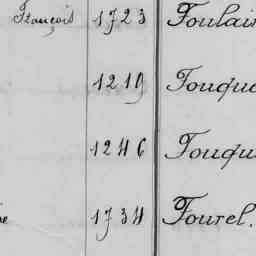 François 1723 Foulai
1219 Fouqu
1246 Fouqu
1734 Fourel.